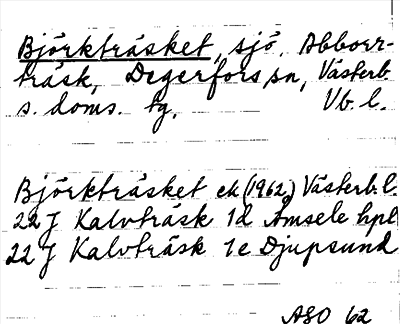 Björkträsket, sjö. Abborr-
träsk, Degerfors sn, Västerb.
s. doms. tg, Vb. l.
Björkträsket ek (1962) Västerb. l.
22 J Kalvträsk 1d Åmsele hpl
22 J Kalvträsk 1e Djupsund
ASO 62